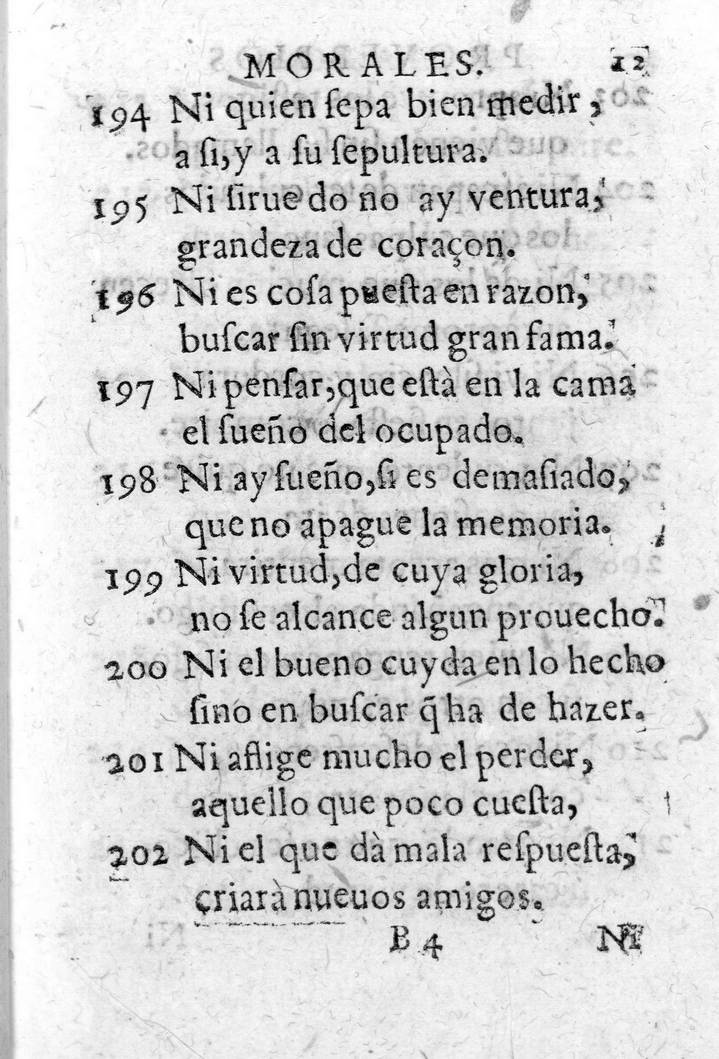 MORALES. 12
194 Ni quien ſepa bien medir,
a ſi, y a ſu ſepultura.
195 Ni ſirue do no ay ventura,
grandeza de coraçon.
196 Ni es coſa pueſta en razon,
buſcar ſin virtud gran fama.
197 Ni penſar, que eſtà en la cama
el ſueño del ocupado.
198 Ni ay ſueño, ſi es demaſiado,
que no apague la memoria.
199 Ni virtud, de cuya gloria,
no ſe alcance algun prouecho.
200 Ni el bueno cuyda en lo hecho
ſino en buſcar q̃ ha de hazer.
201 Ni aflige mucho el perder,
aquello que poco cueſta,
202 Ni el que dà mala reſpueſta,
criarà nueuos amigos.
B 4 Ni